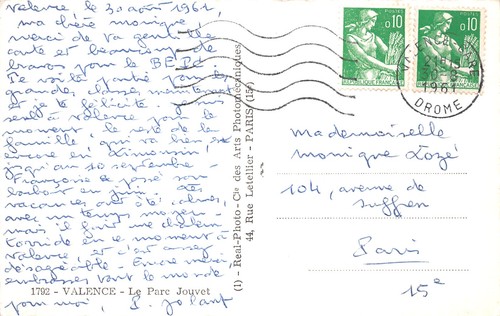 Valence, le 30 août 1961,
ma chère monique,
merci de ta gentille
carte et beaucoup de
bravos pour le BEPC
Te voilà partie pour les
grandes classes, maintenant
et je te félicite. Je suis
seul à Valence pour le
moment, le reste de la
famille, qui va bien, est
encore en Limousin
jusqu'au 10 septembre.
Françoise et José sont
en juin. Les
vacances ont été calmes,
avec un temps moyen.
mais il fait une chaleur
torride en ce moment à
Valence, et c'est assez
désagréable. Encore merci,
embrasses tout le monde
pour moi,
1792 - VALENCE - Le Parc Jouvet
(1) - Real-Photo - Cie des Arts Photomécaniques
44, Rue Letellier - PARIS (15e)
POSTES
0,10
POSTES
0,10
30-8
1961
DROME
Mademoiselle
monique
104, avenue de
Suffren
Paris
15e